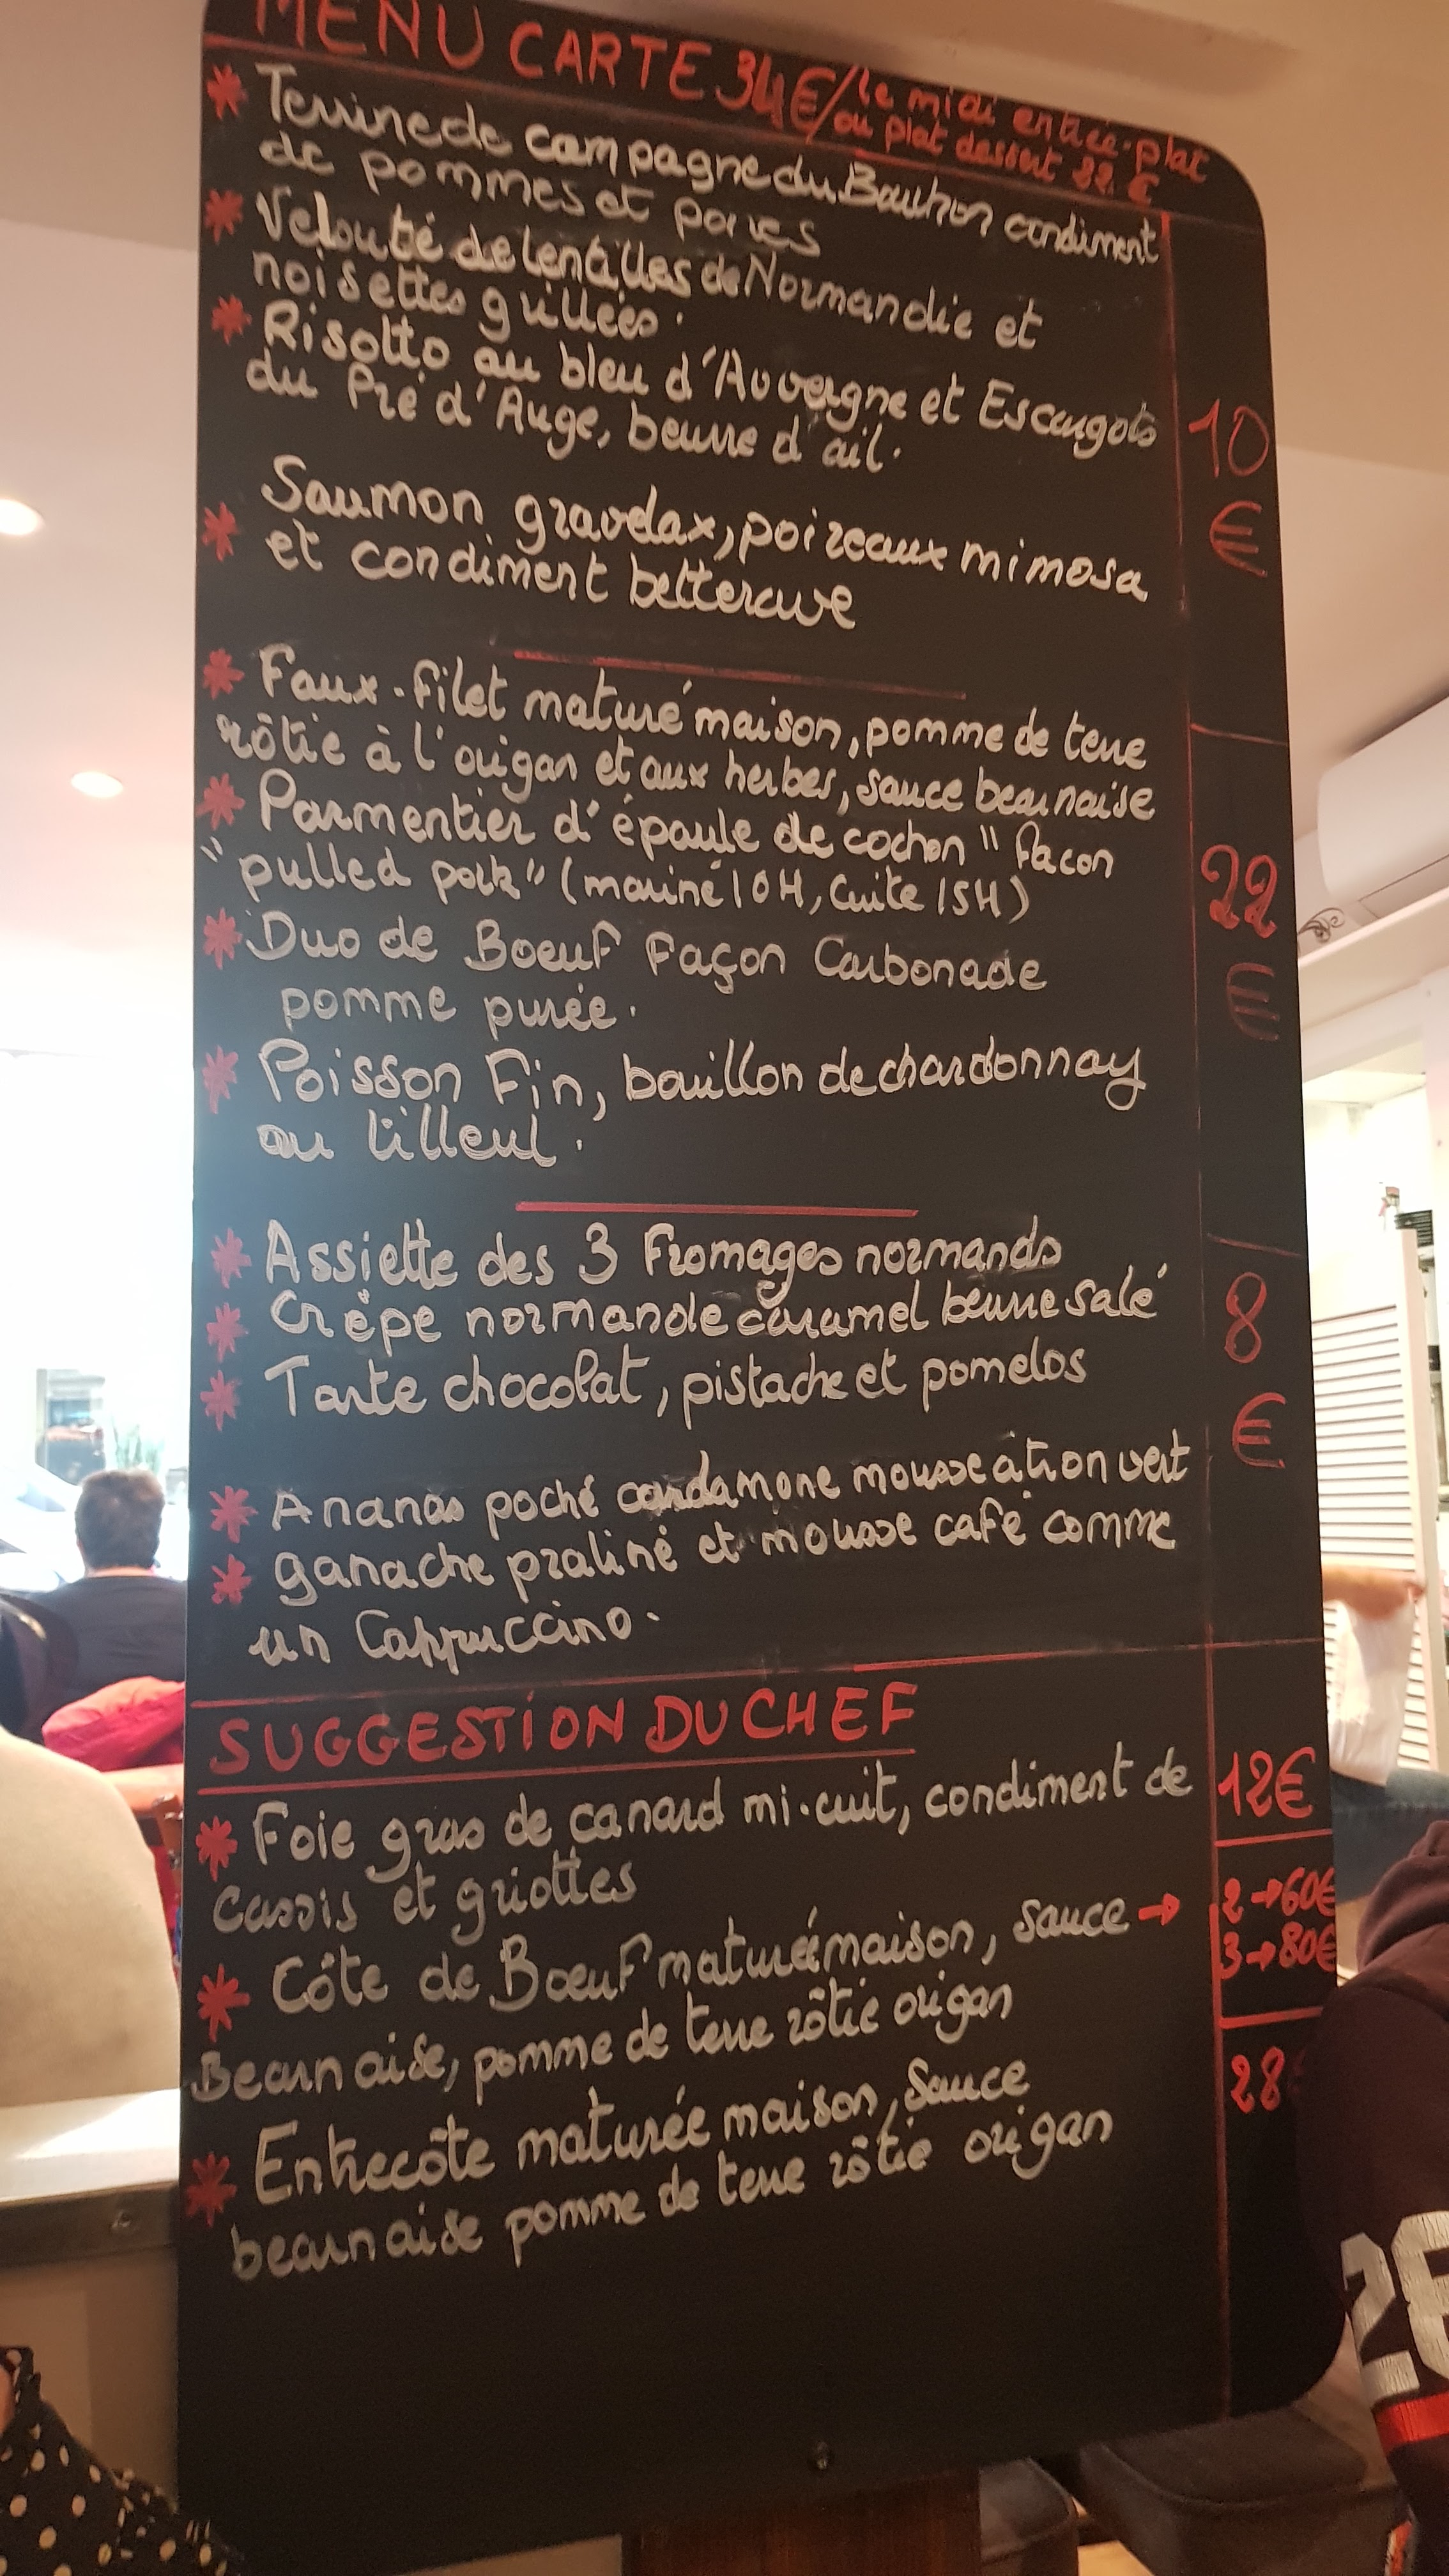 MENU CARTE 34€/le midi entrée-plat
ou plat dessert 22 €
* Terrine de campagne du Bouchon condiment
de pommes et poires
* Velouté de lentilles de Normandie et
noisettes grillées.
* Risotto au bleu d'Auvergne et Escargots
du Pré d'Auge, beurre d'ail.
10
€
Saumon gravelax, poireaux mimosa
* et condiment betterave
* Faux-filet maturé maison, pomme de terre
rôtie à l'origan et aux herbes, sauce bearnaise
* Parmentier d'épaule de cochon " facon
"pulled pork" (mariné 10H, Cuite 15H)
22
€
* Duo de Boeuf Façon Carbonade
pomme purée.
* Poisson Fin, bouillon de chardonnay
au tilleul.
* Assiette des 3 Fromages normands
* Crêpe normande caramel beurre salé
* Tarte chocolat, pistache et pomelos
8
€
* Ananas poché cardamone mousse citron vert
* ganache praliné et mousse café comme
un Cappuccino.
SUGGESTION DU CHEF
* Foie gras de canard mi-cuit, condiment de
cassis et griottes
12€
* Côte de Boeuf maturée maison, sauce →
Bearnaise, pomme de terre rôtie origan
2→60€
3→80€
* Entrecôte maturée maison, Sauce
bearnaise pomme de terre rôtie origan
28€
26